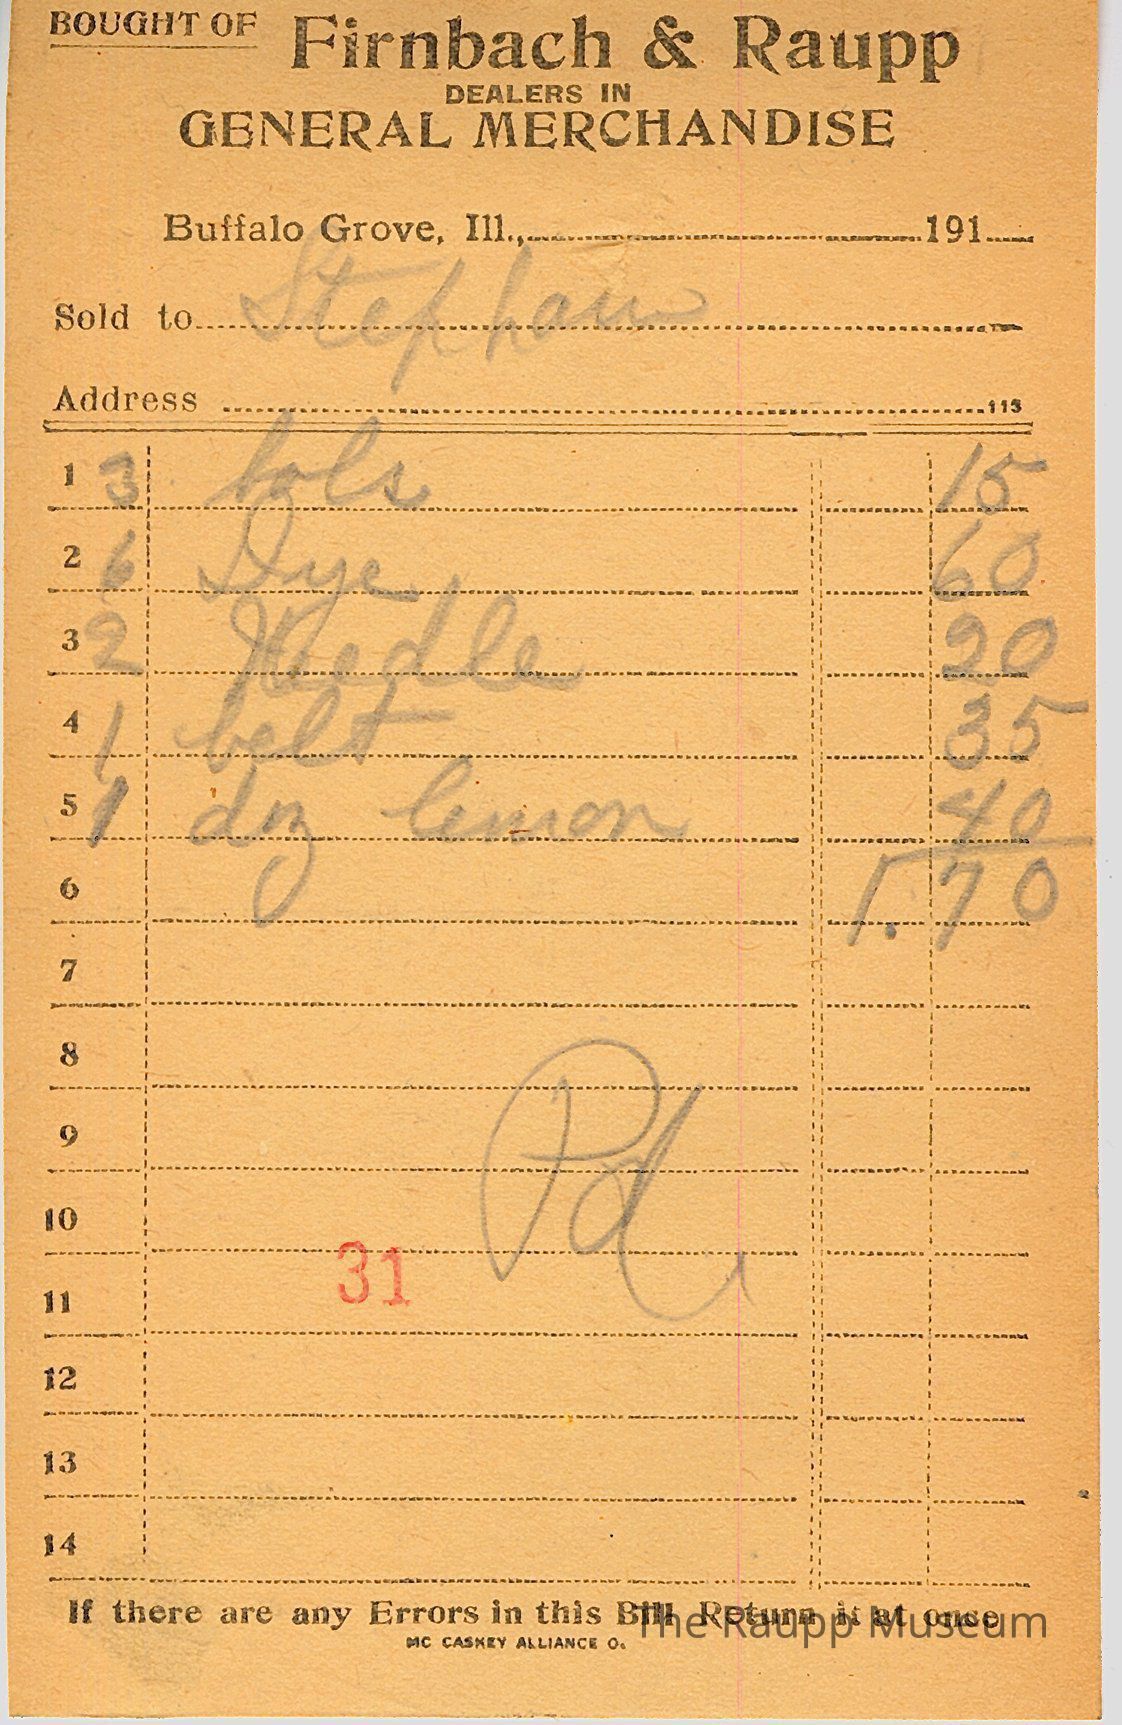 BOUGHT OF Firnbach & Raupp
DEALERS IN
GENERAL MERCHANDISE
Buffalo Grove, Ill., 191
Sold to Stephan
Address 113
1 3 bols 15
2 6 Dye 60
3 2 Needle 20
4 1 belt 35
5 1 doz lemon 40
6 1.70
7
8
9
Pd
10
31
11
12
13
14
If there are any Errors in this Bill Return it at once
The Raupp Museum
MC CASKEY ALLIANCE O.